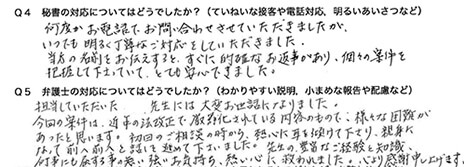 Q4 秘書の対応についてはどうでしたか?(ていねいな接客や電話対応、明るいあいさつなど)
何度かお電話でお問い合わせさせていただきましたが、
いつでも明るく丁寧なご対応をしていただきました。
当方の名前をお伝えすると、すぐに的確なお返事があり、個々の案件を
把握して下さっていて、とても安心できました。
Q5 弁護士の対応についてはどうでしたか?(わかりやすい説明、小まめな報告や配慮など)
担当していただいた 先生には大変お世話になりました。
今回の案件は、近年の法改正で厳格化されている内容のもので、様々な困難が
あったと思います。初回のご相談の時から、熱心に耳を傾けて下さり、親身に
なって前へ前へと話を進めて下さいました。先生の、豊富なご経験と知識、
何事にも屈する事の無い強いお気持ち、熱い心に救われました。心より感謝申し上げます